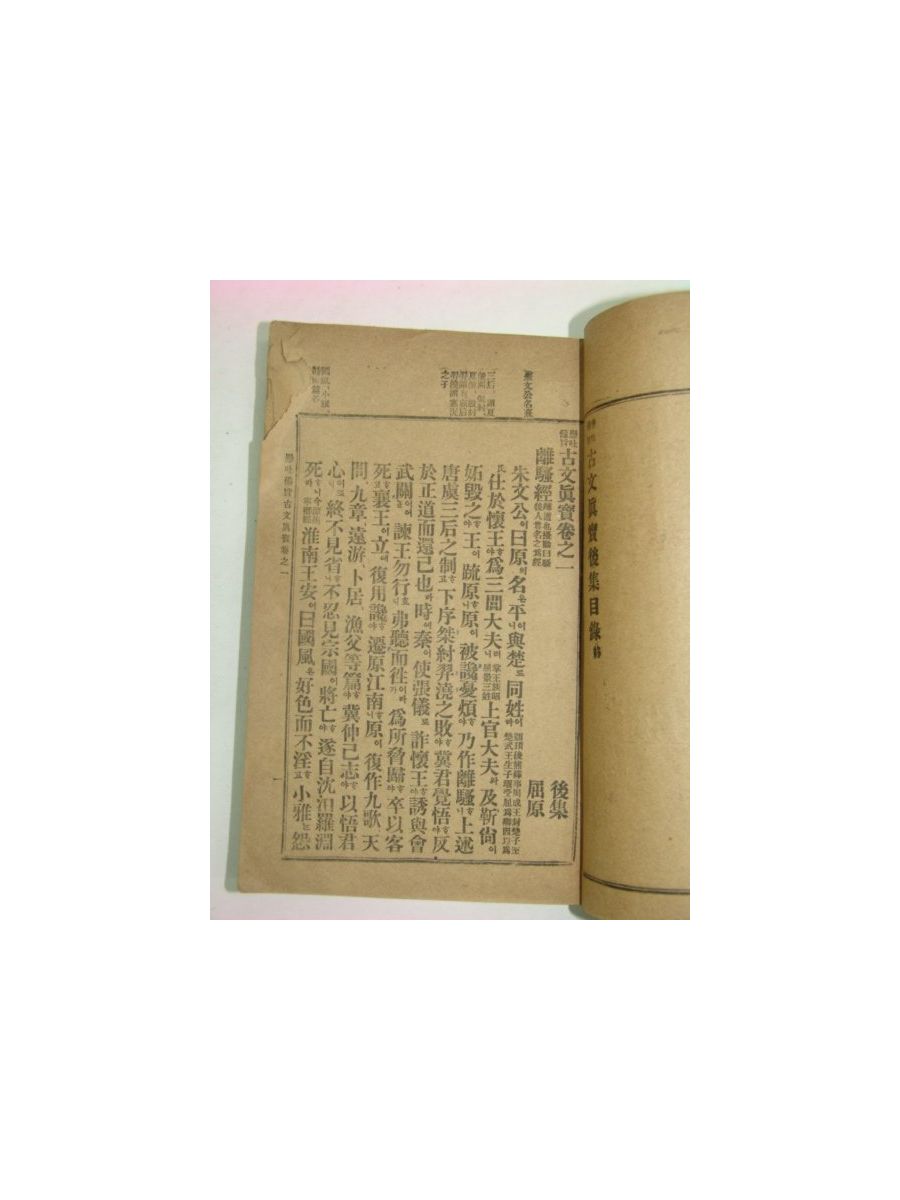 古文眞寶後集目錄 終
懸吐備旨 古文眞寶卷之一 後集
離騷經 屈原
朱文公이曰原의名은平이니與楚로同姓이라
仕於懷王하야爲三閭大夫러니 掌王族昭屈景三姓 上官大夫와及靳尙이
妬毁之하야王이疏原하니原이被讒憂煩하야乃作離騷하니上述
唐虞三后之制하고下序桀紂羿澆之敗하야冀君覺悟하야反
於正道而還己也라時에秦이使張儀로詐懷王하야誘與會
武關이어늘諫王勿行호대弗聽而往이라가爲所脅歸하야卒以客
死하고襄王이立에復用讒하야遷原江南하니原이復作九歌、天
問、九章、遠游、卜居、漁父等篇하야冀伸己志하야以悟君
心이로대終不見省하니不忍見宗國이將亡하야遂自沈汨羅淵
死하니라淮南王安이曰國風은好色而不淫하고小雅는怨
懸吐備旨古文眞寶卷之一
一
朱文公名熹
國風、小雅、